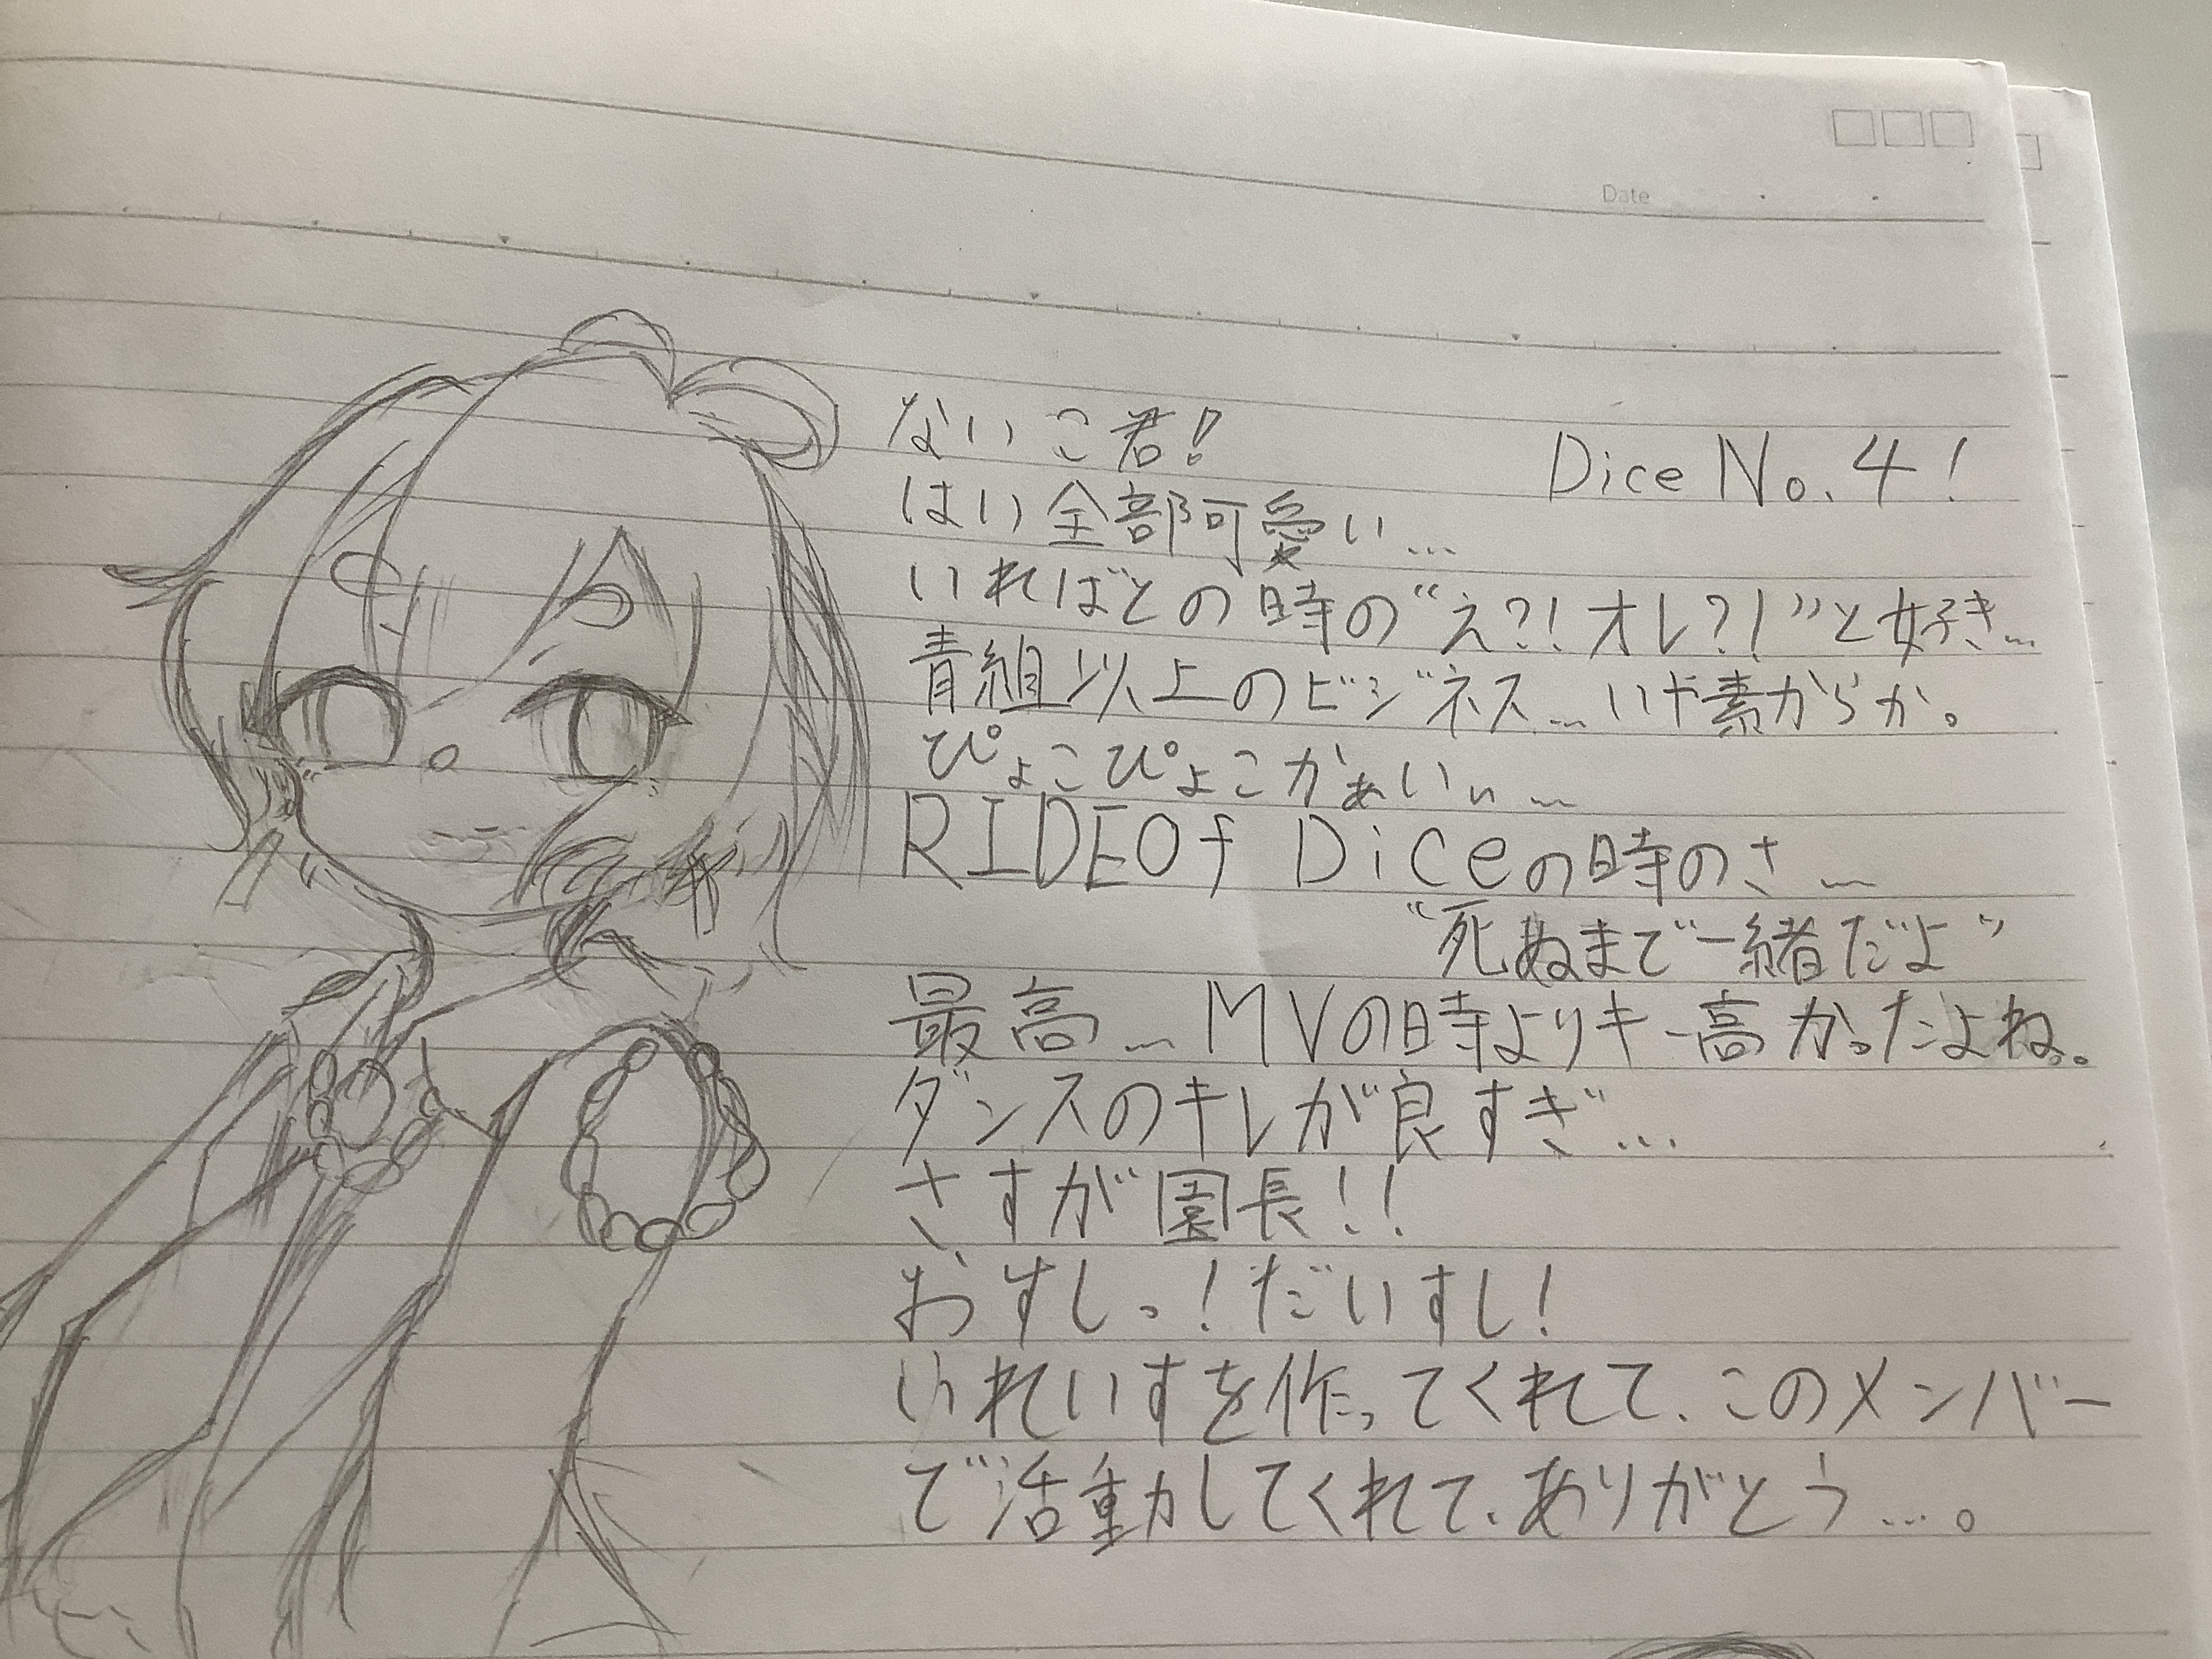 Date
ないこ君!
Dice No.4!
はい全部可愛い…
いればとの時の“え?!オレ?!”と好き…
青組以上のビジネス…いや素からか。
ぴょこぴょこかぁいぃ…
RIDEOf Diceの時のさ…
“死ぬまで一緒だよ”
最高…MVの時よりキー高かったよね。
ダンスのキレが良すぎ…
さすが園長!!
おすしっ!だいすし!
いれいすを作ってくれて、このメンバー
で活動してくれて、ありがとう…。